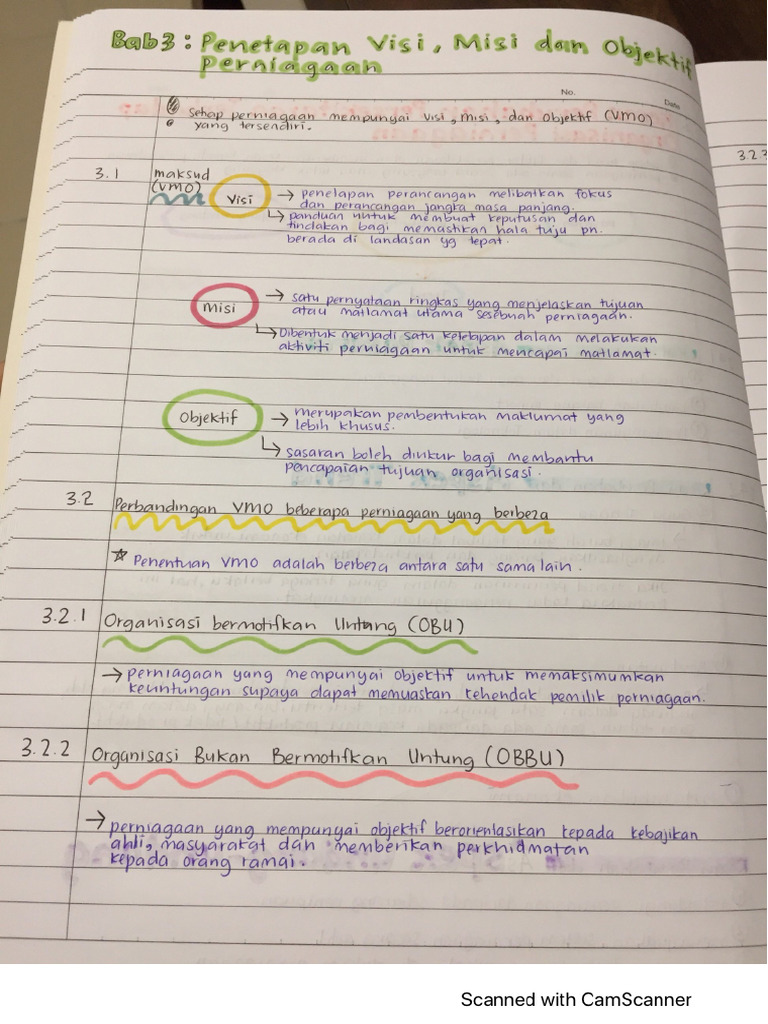 Bab 3 : Penetapan Visi, Misi dan Objektif
perniagaan
No.
Date
Setiap perniagaan mempunyai visi, misi, dan Objektif (VMO)
yang tersendiri.
3.2.3
3.1 maksud
(VMO)
Visi → penetapan perancangan melibatkan fokus
dan perancangan jangka masa panjang.
↳ panduan untuk membuat keputusan dan
tindakan bagi memastikan hala tuju pn.
berada di landasan yg tepat.
Misi → satu pernyataan ringkas yang menjelaskan tujuan
atau matlamat utama sesebuah perniagaan.
↳ Dibentuk menjadi satu ketetapan dalam melakukan
aktiviti perniagaan untuk mencapai matlamat.
Objektif → merupakan pembentukan maklumat yang
lebih khusus.
↳ sasaran boleh diukur bagi membantu
pencapaian tujuan organisasi.
3.2 Perbandingan VMO beberapa perniagaan yang berbeza
☆ Penentuan VMO adalah berbeza antara satu sama lain.
3.2.1 Organisasi bermotifkan Untung (OBU)
→ perniagaan yang mempunyai objektif untuk memaksimumkan
keuntungan supaya dapat memuaskan kehendak pemilik perniagaan.
3.2.2 Organisasi Bukan Bermotifkan Untung (OBBU)
→ perniagaan yang mempunyai objektif berorientasikan kepada kebajikan
ahli, masyarakat dan memberikan perkhidmatan
kepada orang ramai.
Scanned with CamScanner